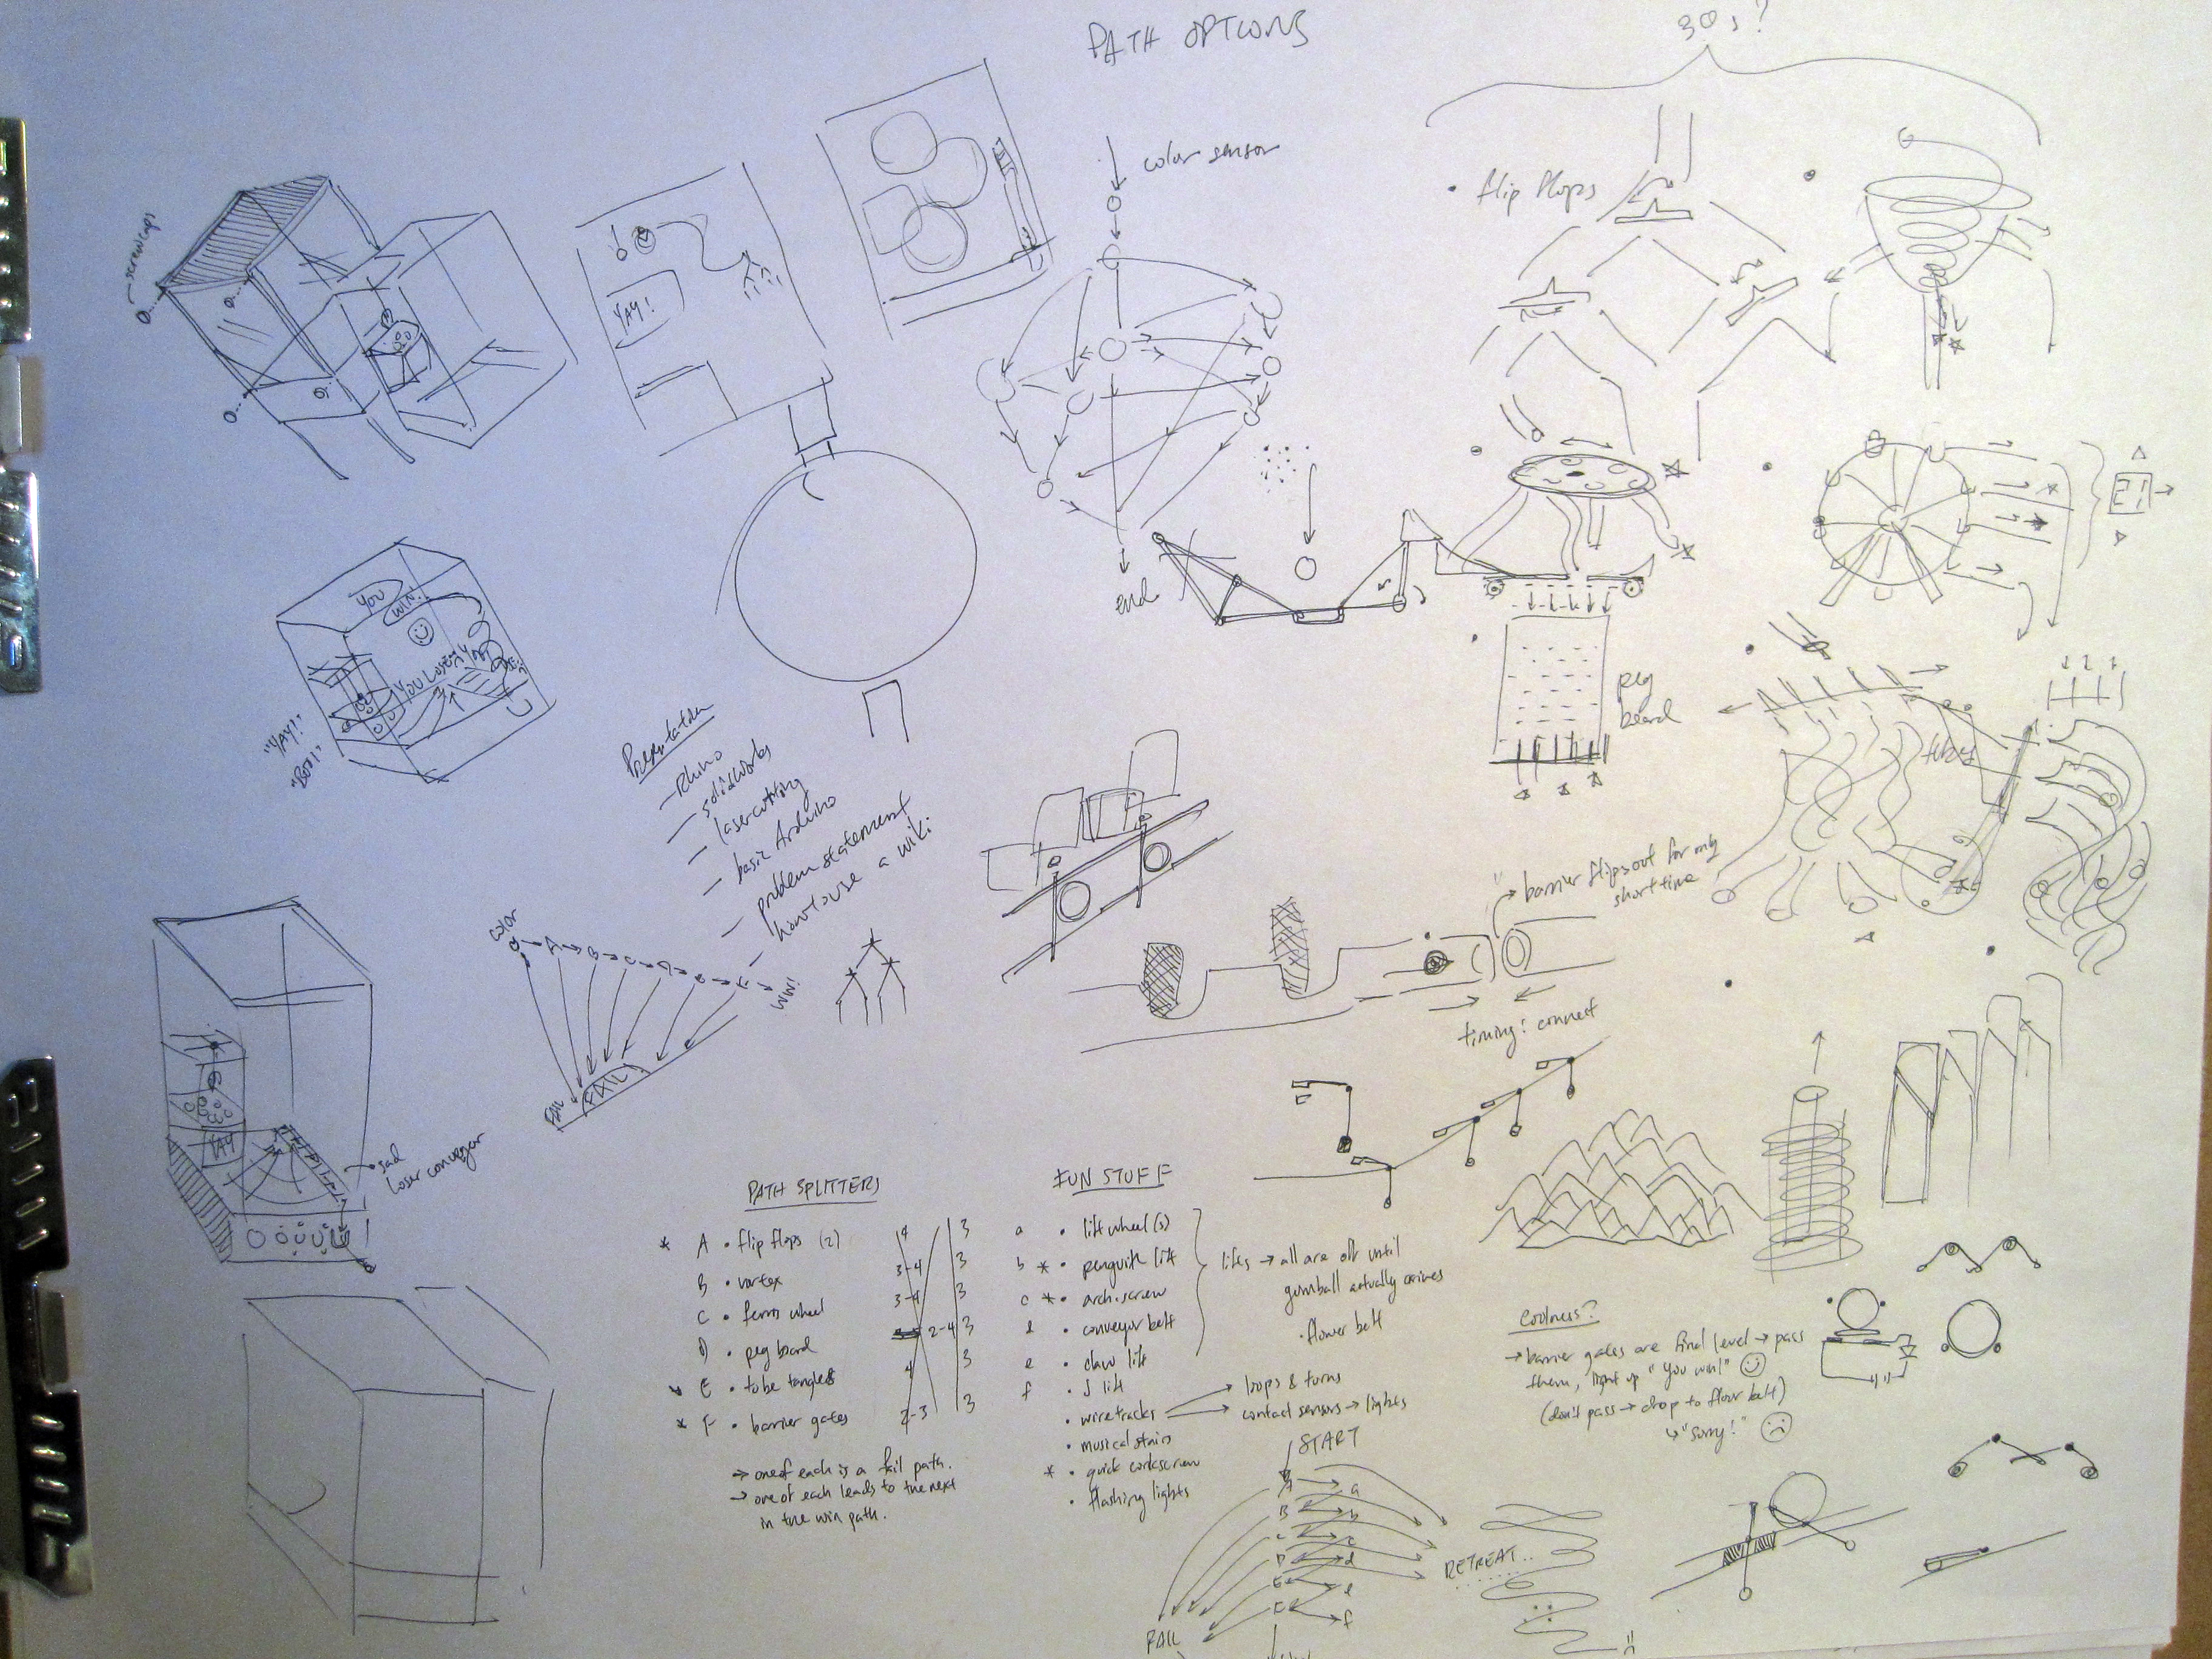 PATH OPTIONS
30s?
color sensor
• flip flops
screw caps
YAY!
end
YOU
WIN!
YOU LOSE
"YAY!"
"BOO!"
peg
board
tubes
Presentation
- Rhino
- solidworks
- lasercutting
- basic Arduino
- problem statement
- how to use a wiki
barrier flips out for only
short time
timing! connect
color
A
WIN!
FAIL
FAIL!
YAY
sad
loser conveyor
PATH SPLITTERS
* A • flip flops (2) 4 3
B • vortex 3-4 3
C • ferris wheel 3-4 3
D • peg board 2-4 3
E • tube tangles 4 3
* F • barrier gates 2-3 3
→ one of each is a fail path.
→ one of each leads to the next
in the win path.
FUN STUFF
a • lift wheel(s)
b * • penguin lift
c * • arch. screw
d • conveyor belt
e • claw lift
f • J lift
• wire tracks
• musical stairs
* • quick corkscrew
• flashing lights
lifts → all are off until
gumball actually arrives
• flower belt
loops & turns
contact sensors → lights
Coolness?
→ barrier gates are final level → pass
them, light up "You win!"
(don't pass → drop to floor belt)
↳ "Sorry!"
START
A a
B b
C c
D d
E e
F f
RETREAT...
FAIL